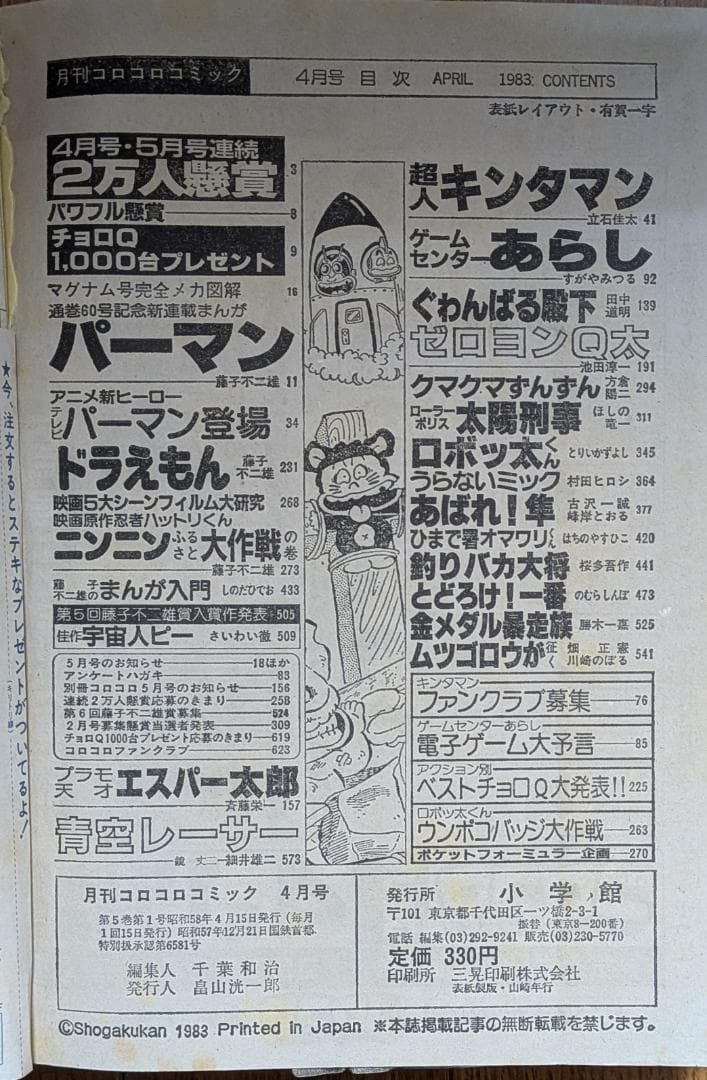 月刊コロコロコミック
4月号 目次 APRIL 1983: CONTENTS
表紙レイアウト・有賀一宇
4月号・5月号連続
2万人懸賞 3
パワフル懸賞 8
チョロQ
1,000台プレゼント 9
マグナム号完全メカ図解 16
通巻60号記念新連載まんが
パーマン
藤子不二雄 11
アニメ新ヒーロー
テレビパーマン登場 34
ドラえもん 藤子不二雄 231
映画5大シーンフィルム大研究 268
映画原作忍者ハットリくん
ニンニンふるさと大作戦の巻
藤子不二雄 273
藤子不二雄のまんが入門 しのだひでお 433
第5回藤子不二雄賞入賞作発表 505
佳作 宇宙人ピー さいわい徹 509
5月号のお知らせ 18ほか
アンケートハガキ 83
別冊コロコロ5月号のお知らせ 156
連続2万人懸賞応募のきまり 258
第6回藤子不二雄賞募集 524
2月号募集懸賞当選者発表 309
チョロQ1000台プレゼント応募のきまり 619
コロコロファンクラブ 623
プラモ天才 エスパー太郎
斉藤栄一 157
青空レーサー
鏡 丈二 細井雄二 573
超人キンタマン
立石佳太 41
ゲームセンターあらし
すがやみつる 92
ぐゎんばる殿下 田中道明 139
ゼロヨンQ太
池田淳一 191
クマクマずんずん 方倉陽二 294
ローラーポリス 太陽刑事 ほしの竜一 311
ロボッ太くん とりいかずよし 345
うらないミック 村田ヒロシ 364
あばれ!隼 古沢一誠 峰岸とおる 377
ひまで暑オマワリくん はちのやすひこ 420
釣りバカ大将 桜多吾作 441
とどろけ!一番 のむらしんぼ 473
金メダル暴走族 勝木一嘉 525
ムツゴロウが征く 畑正憲 川崎のぼる 541
キンタマン
ファンクラブ募集 76
ゲームセンターあらし
電子ゲーム大予言 85
アクション別
ベストチョロQ大発表!! 225
ロボッ太くん
ウンポコバッジ大作戦 263
ポケットフォーミュラー企画 270
月刊コロコロコミック 4月号
第5巻第1号昭和58年4月15日発行(毎月
1回15日発行)昭和57年12月21日国鉄首都
特別扱承認第6581号
編集人 千葉和治
発行人 畠山滉一郎
発行所 小学館
〒101 東京都千代田区一ツ橋2-3-1
振替(東京8-200番)
電話 編集(03)292-9241 販売(03)230-5770
定価 330円
印刷所 三晃印刷株式会社
表紙製版・山崎年行
©Shogakukan 1983 Printed in Japan ※本誌掲載記事の無断転載を禁じます。
★今、注文するとステキなプレゼントがついてるよ!